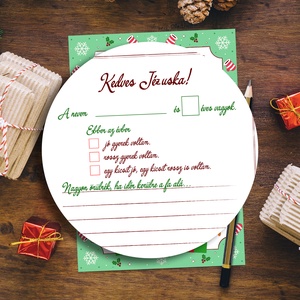 Kedves Jézuska!
A nevem és éves vagyok.
Ebben az évben
jó gyerek voltam.
rossz gyerek voltam.
egy kicsit jó, egy kicsit rossz is voltam.
Nagyon örülnék, ha idén kerülne a fa alá...